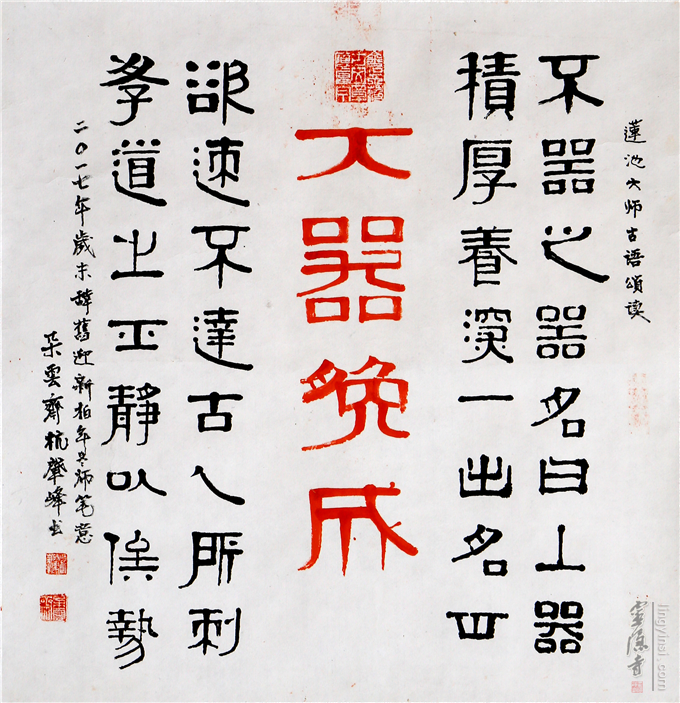 蓮池大师古语頌读
不器之器名曰上器
積厚養深一出名世
大器晚成
欲速不達古人所刺
孝道之正靜以俟勢
二〇一七年歲末辞舊迎新柏年老师笔意
朵雲齋杭肇峰书